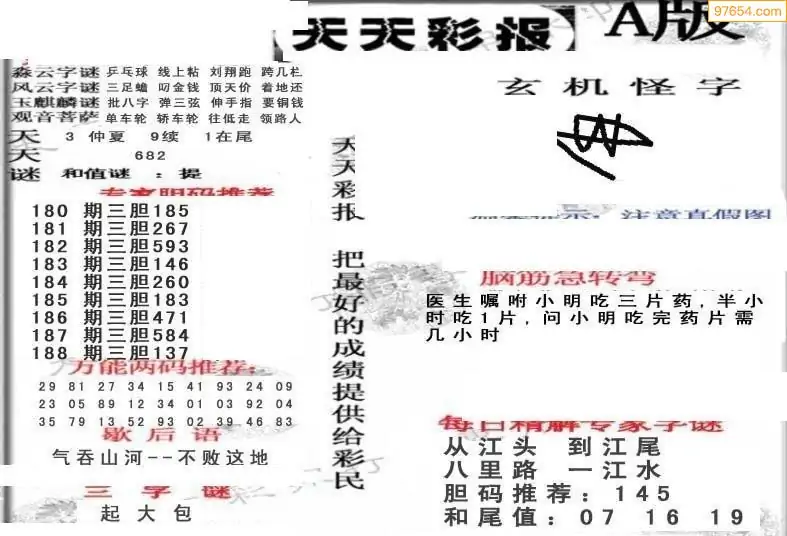 97654.com
天天彩报 A版
森云字谜 乒乓球 线上粘 刘翔跑 跨几栏
风云字谜 三足蟾 叼金钱 顶天价 着地还
玉麒麟谜 批八字 弹三弦 伸手指 要铜钱
观音菩萨 单车轮 轿车轮 往低走 领路人
天 3 仲夏 9续 1在尾
天 682
谜 和值谜 : 提
专家胆码推荐
180 期三胆185
181 期三胆267
182 期三胆593
183 期三胆146
184 期三胆260
185 期三胆183
186 期三胆471
187 期三胆584
188 期三胆137
万能两码推荐:
29 81 27 34 15 41 93 24 09
23 05 89 12 34 01 03 92 04
35 79 13 52 93 02 39 46 83
歇后语
气吞山河--不败这地
三字谜
起大包
天天彩报 把最好的成绩提供给彩民
玄机怪字
注意真假图
脑筋急转弯
医生嘱咐小明吃三片药,半小
时吃1片,问小明吃完药片需
几小时
每日精解专家字谜
从江头 到江尾
八里路 一江水
胆码推荐: 145
和尾值: 07 16 19